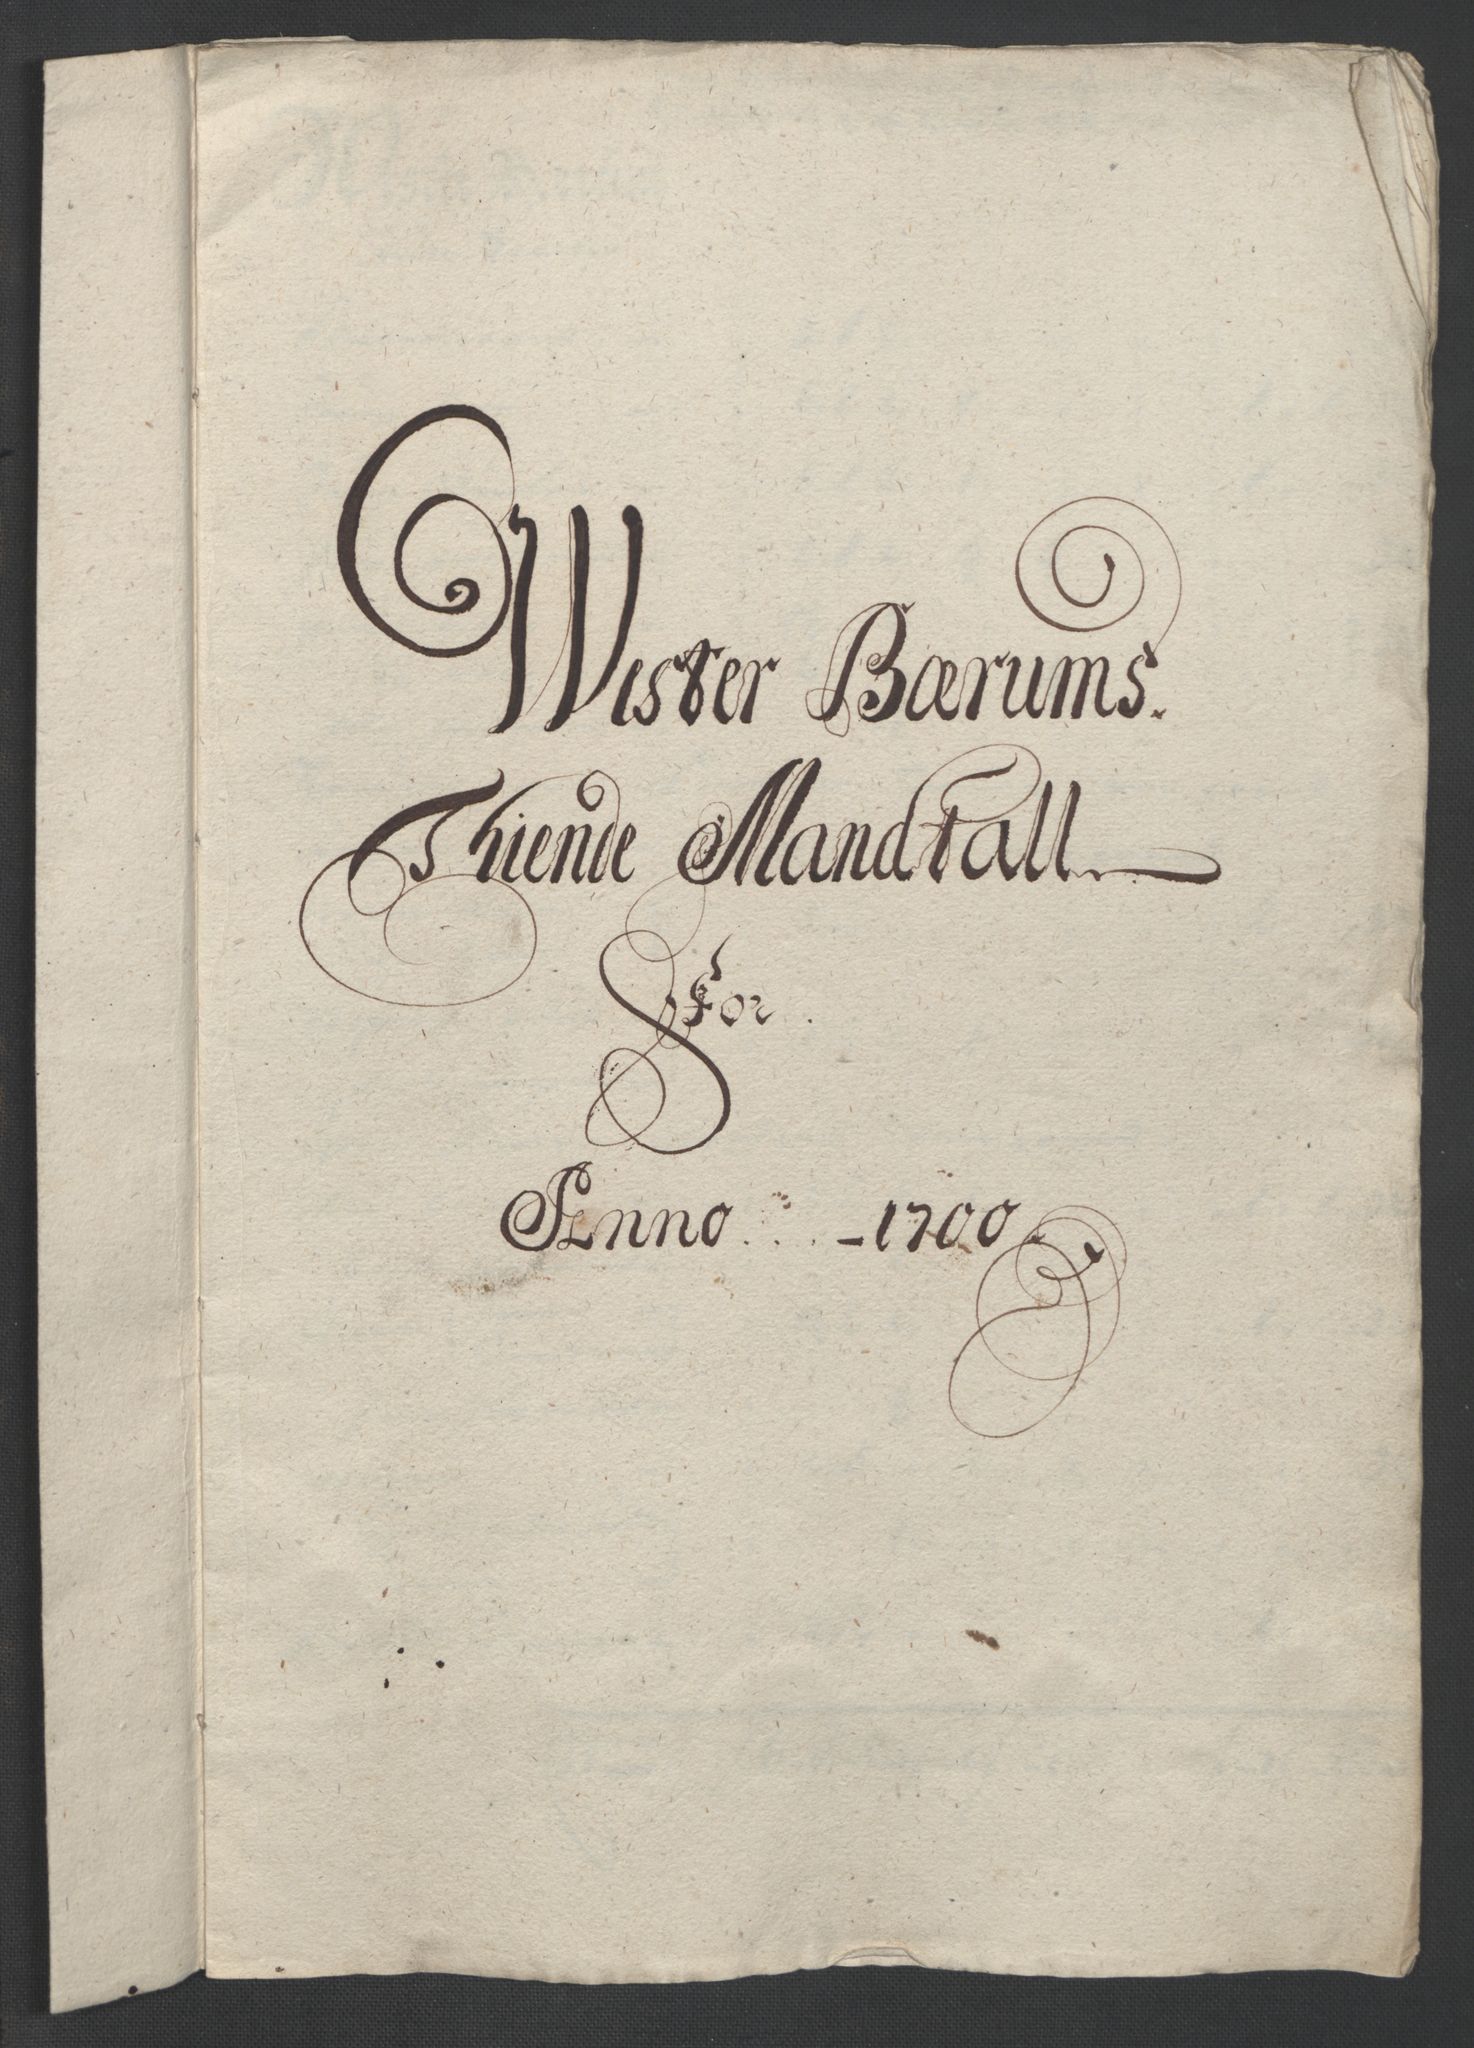 Wester Bærums.
Thiende Mandtall
For
Anno 1700